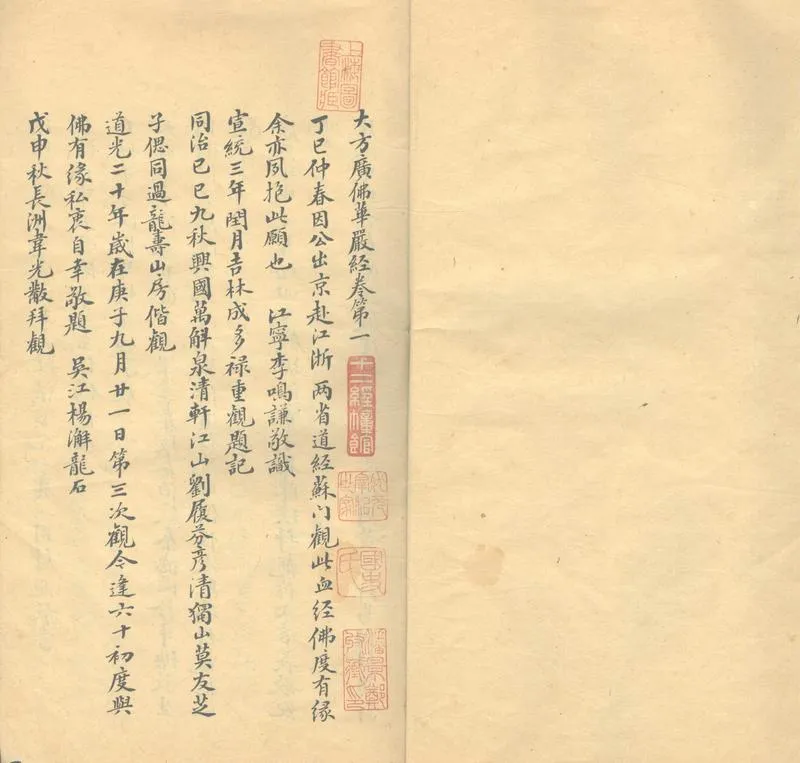 上海圖書館藏
大方廣佛華嚴經卷第一
十二經幢館
國史氏
潘景鄭收藏印
丁巳仲春因公出京赴江浙兩省道經蘇門觀此血經佛度有緣
余亦夙抱此願也 江寧李鳴謙敬識
宣統三年閏月吉林成多祿重觀題記
同治己巳九秋興國萬斛泉清軒江山劉履芬彥清獨山莫友芝
子偲同過龍壽山房偕觀
道光二十年歲在庚子九月廿一日第三次觀今逢六十初度與
佛有緣私衷自幸敬題 吳江楊澥龍石
戊申秋長洲韋光黻拜觀